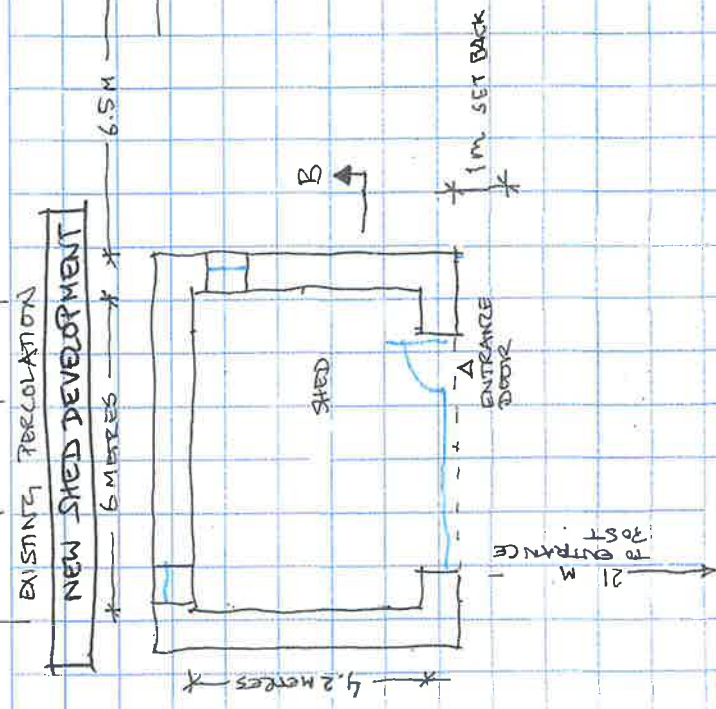 EXISTING PERCOLATION
NEW SHED DEVELOPMENT
6 METRES
6.5M
B
1m SET BACK
SHED
ENTRANCE
DOOR
4.2 METRES
21 M
TO ENTRANCE
POST